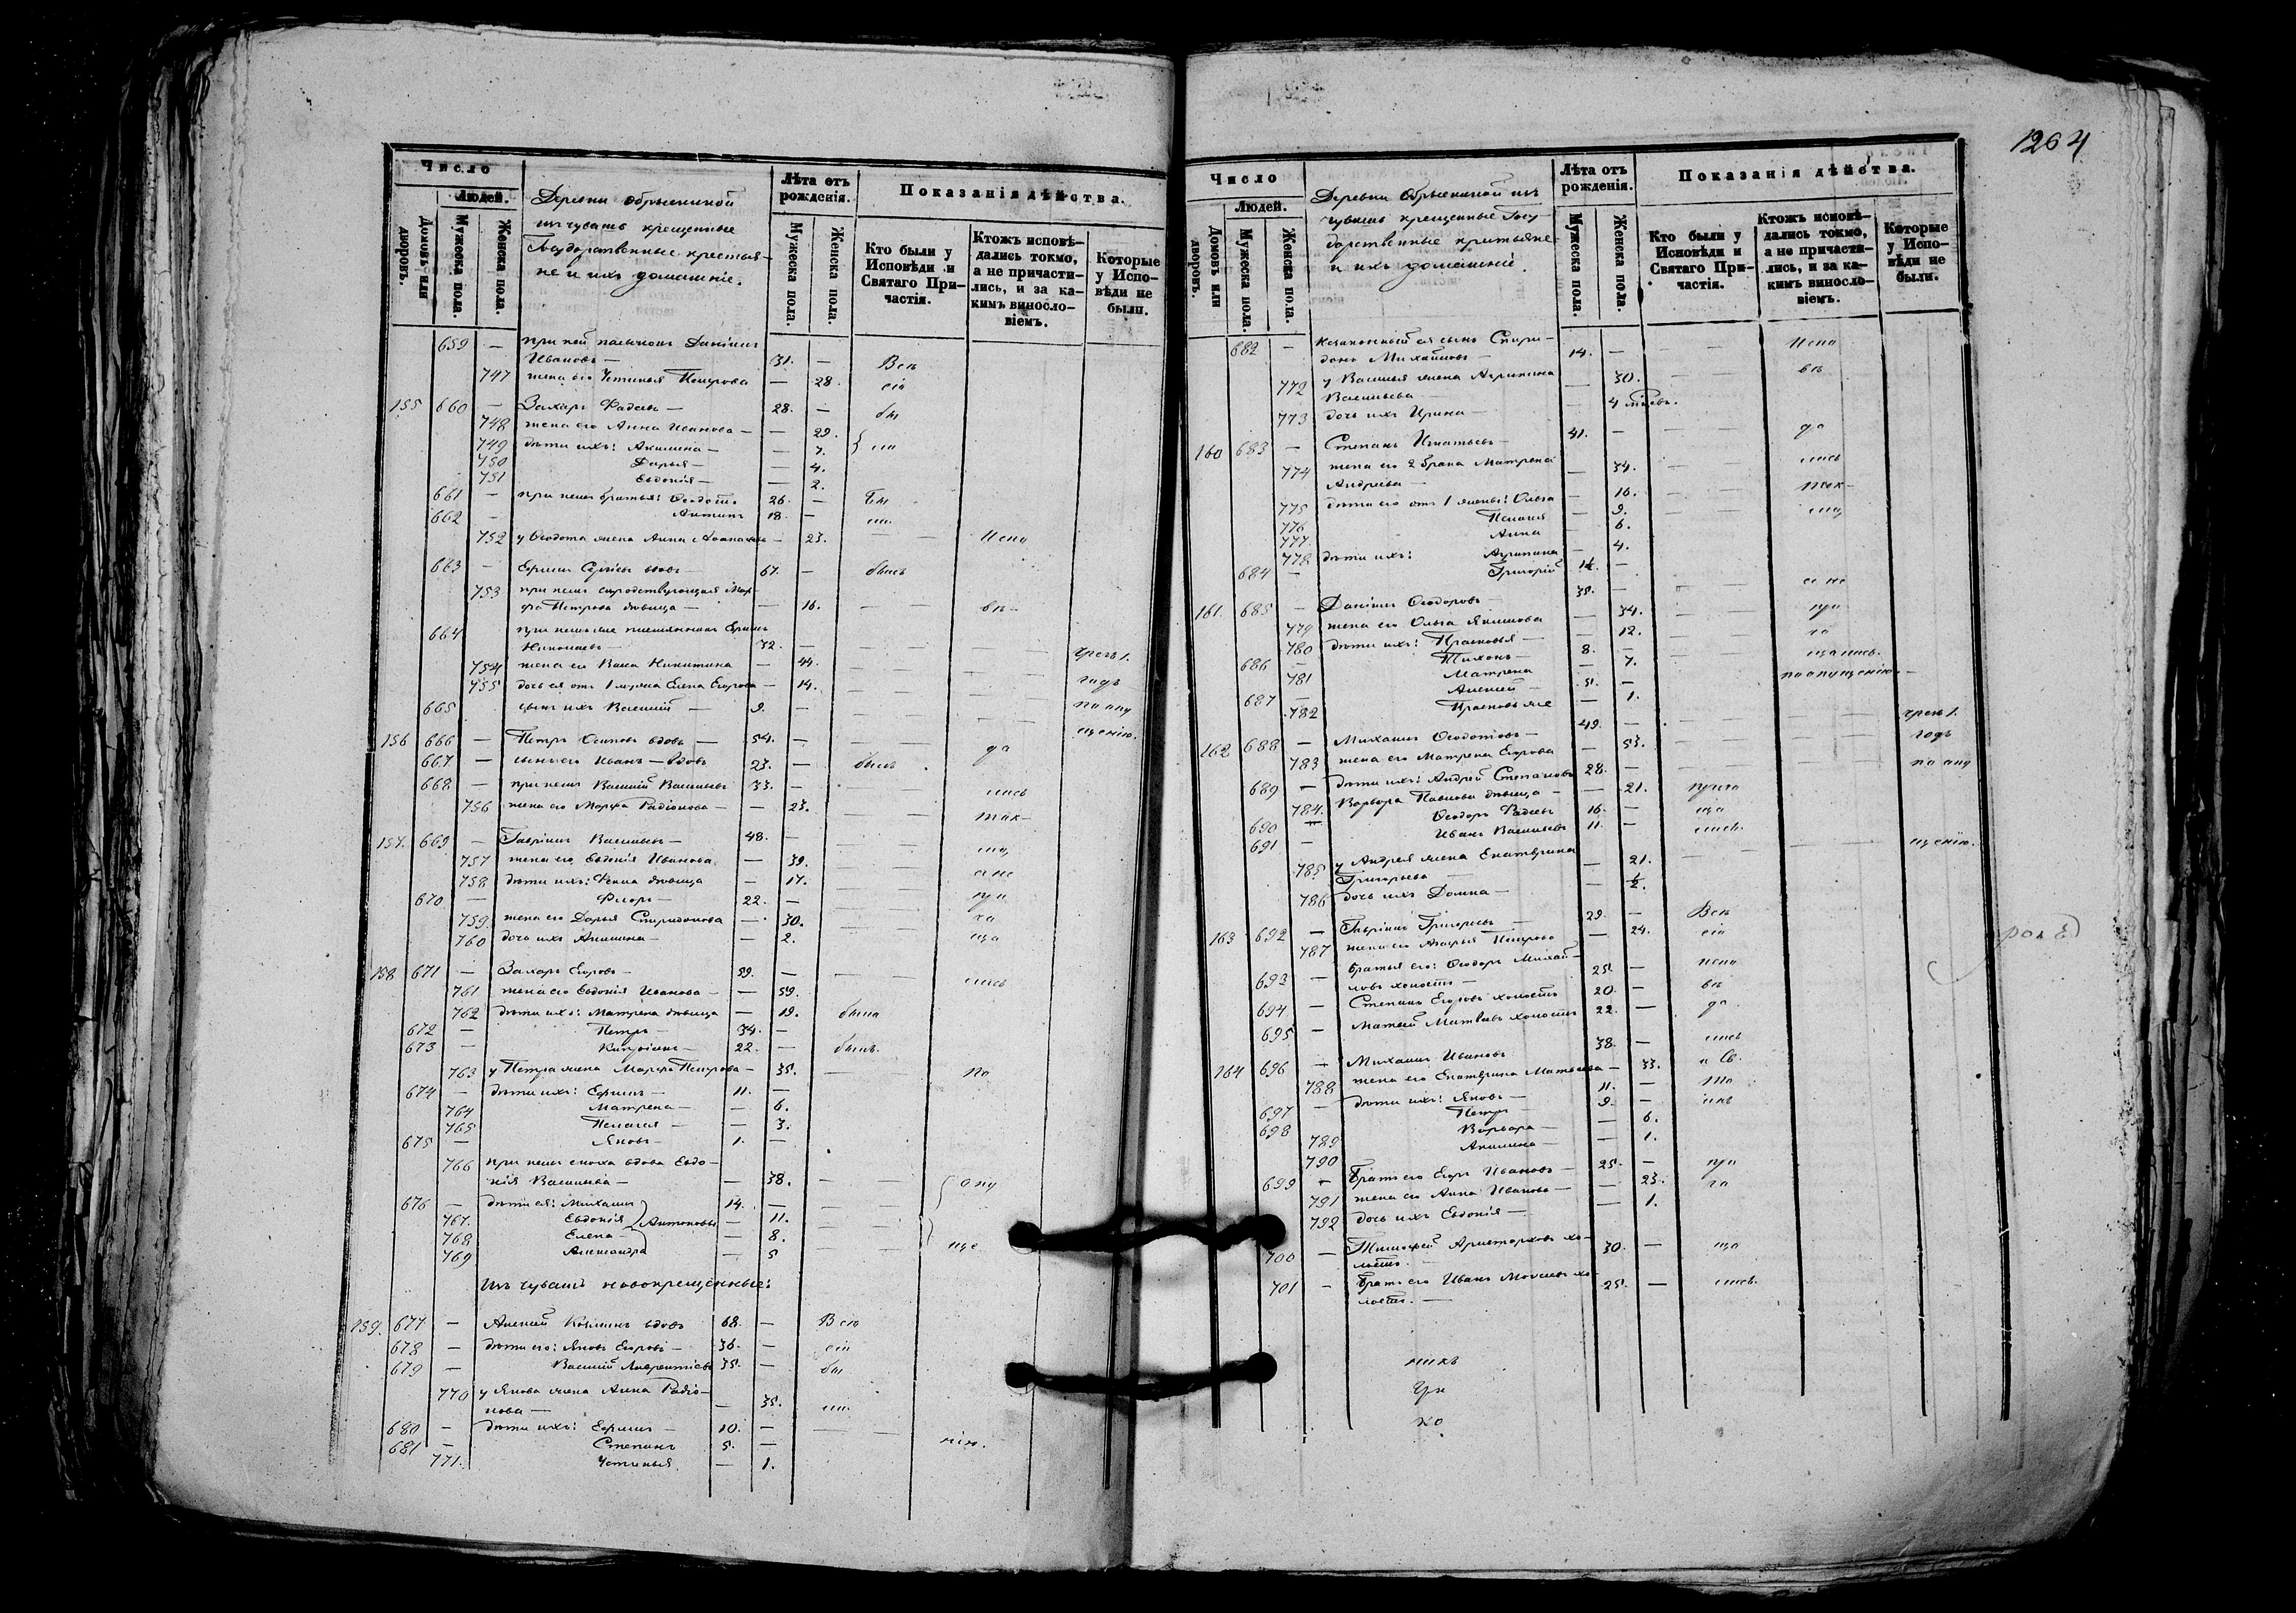 1264
Число
Людей.
Домовъ или дворовъ.
Мужеска пола.
Женска пола.
Деревни
изъ чувашъ крещенные
Государственные крестья-
не и ихъ домашніе.
Лѣта отъ рожденія.
Мужеска пола.
Женска пола.
Показанія дѣйства.
Кто были у Исповѣди и Святаго При-
частія.
Ктожъ исповѣ-
дались токмо,
а не причасти-
лись, и за ка-
кимъ виносло-
віемъ.
Которые
у Испо-
вѣди не
были.
659 — при ней Даніилъ
Ивановъ — 31. — Всѣ
747 жена его Устинья Петрова — 28. сіи
155 660 — Захаръ Фадеевъ — 28. — бы
748 жена его Анна Иванова — — 29.
749 дѣти ихъ: Акилина — — 7. } ли
750 Дарья — — 4.
751 Евдокія — — 2.
661 — при немъ братья: Ѳеодотъ 26. — Бы
662 — Антипъ 18. — ли.
752 у Ѳеодота жена Анна — 23. — — Испо
663 — Ефимъ Сергѣевъ вдовъ — 67. — былъ
753 при немъ Мар-
фа Петрова дѣвица — — 16. — — вѣ-
664 при немъ же племянникъ Ефимъ
Николаевъ — 32. — — — — чрезъ 1.
754 жена его Васса Никитина — 44. — — годъ
755 дочь ея отъ 1 мужа Елена Егорова — 14. — — по опу
665 сынъ ихъ Василій — 9. — — — щенію.
156 666 — Петръ Осиповъ вдовъ — 54. — — — до
667 — сынъ его Иванъ — вдовъ 23. — былъ
668 — при немъ Василій Васильевъ 33. — — — лись
756 жена его Марфа Радіонова — — 23. — — ток-
157. 669 — Гавріилъ Васильевъ — 48. — — — мо,
757 жена его Евдокія Иванова — 39. — — а не
758 дѣти ихъ: Фекла дѣвица — 17. — — при
670 — Флоръ — 22. — — — ча
759. жена его Дарья Спиридонова — 30. — — ща
760 дочь ихъ Акилина — — 2.
158 671 — Захаръ Егоровъ — 59. — — — лись
761 жена его Евдокія Иванова — — 59.
762 дѣти ихъ: Матрена дѣвица — 19. была
672 — Петръ — 34. —
673 — Кипріянъ — 22. — былъ.
763 у Петра жена Марфа Петрова — 35. — по
674 — дѣти ихъ: Ефимъ — 11. —
764 Матрена — — 6.
765 Пелагея — — 3.
675 — Яковъ — 1. —
766 при немъ сноха вдова Евдо-
кія Васильева — — 38. — — опу
676 — дѣти ея: Михаилъ 14. — — —
767. Евдокія } Антоновы — 11. — —
768 Елена — — 8.
769 Александра — 5 — — ще
Изъ чувашъ новокрещенные:
159. 677 — Алексѣй вдовъ 68. — Всѣ
678 — дѣти его: Яковъ Егоровъ — 36. — сіи
679 — Василій Лаврентіевъ 35. — бы
770 у Якова жена Анна Радіо-
нова — — 35. ли.
680 — дѣти ихъ: Ефимъ — 10. — — —
681 — Степанъ 5. — нію.
771. Устинья. — 1.
Число
Людей.
Домовъ или дворовъ.
Мужеска пола.
Женска пола.
Деревни изъ
чувашъ крещенные Госу-
дарственные крестьяне
и ихъ домашніе.
Лѣта отъ рожденія.
Мужеска пола.
Женска пола.
Показанія дѣйства.
Кто были у Исповѣди и Святаго При-
частія.
Ктожъ исповѣ-
дались токмо,
а не причасти-
лись, и за ка-
кимъ виносло-
віемъ.
Которые
у Испо-
вѣди не
были.
682 — незаконный ея сынъ Спири-
донъ Михайловъ — 14. — — — Испо
772 у Василья жена Агрипина
Васильева — — 30. — — вѣ
773 дочь ихъ Ирина — — 4 мѣсяц.
160 683 — Степанъ Игнатьевъ — 41. — — — до
774 жена его 2 брака Матрена
Андреева — — 34. — — лись
775 дѣти его отъ 1 жены: Ольга — 16. — — ток-
776 Пелагея — 9. — мо,
777. Анна — 6.
778 дѣти ихъ: Агрипина — 4.
684 — Григорій 1½. —
161. 685 — Даніилъ Ѳеодоровъ — 35. — — — а не
779 жена его Ольга Якимова — 34. — — при
780 дѣти ихъ: Прасковья — — 12. — — ча
686 — Тихонъ — 8. — щались.
781 Матрена — 7. по опущенію. —
687 — Алексѣй — 5. —
782 Прасковья же — 1.
162 688 — Михаилъ Ѳеодотовъ — 49. — чрезъ 1.
783 жена его Матрена Егорова — 53. — годъ
689 — дѣти ихъ: Андрей Степановъ 28. — — по опу
784. Варвара Павлова дѣвица — — 21. приго
690 — Ѳеодоръ Фадеевъ 16. — ща
691 — Иванъ Васильевъ 11. — лись. щенію.
785 у Андрея жена Екатерина
Григорьева — — 21. — —
786 дочь ихъ Домна — — ½.
163 692 — Гавріилъ Григорьевъ — 29. — Всѣ
787 жена его Марья Петрова — 24. сіи
693 — братья его: Ѳеодоръ Михай-
ловъ холостъ — 25. — испо
694 — Степанъ Егоровъ холостъ 20. — вѣ
695 — Матвей Матвѣевъ холостъ 22. — до
164 696 — Михаилъ Ивановъ 38. — лись
788 жена его Екатерина Матвѣева — 33. и Св.
697 — дѣти ихъ: Яковъ — 11. — та
698 Петръ — 9. — инъ
789 Варвара — — 6.
790 Акилина — — 1.
699 — Братъ его Егоръ Ивановъ — 25. — при
791 жена его Анна Иванова — — 23. ча
792 дочь ихъ Евдокія — — 1.
700 — Тимоѳей Аристарховъ хо-
лостъ. — 30. — ща
701 — Братъ его Иванъ Моисеевъ хо-
лостъ. — 25. — лись.